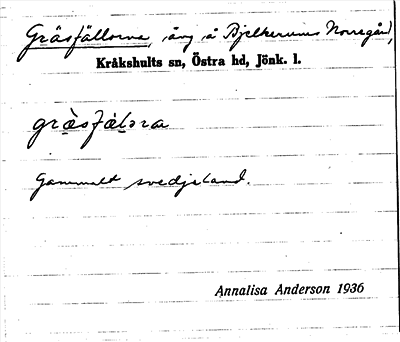 Gräsfällorna, äng å Bjelkerums Norregård,
Kråkshults sn, Östra hd, Jönk. l.
gràsfàlɔra
Gammalt svedjeland.
Annalisa Anderson 1936